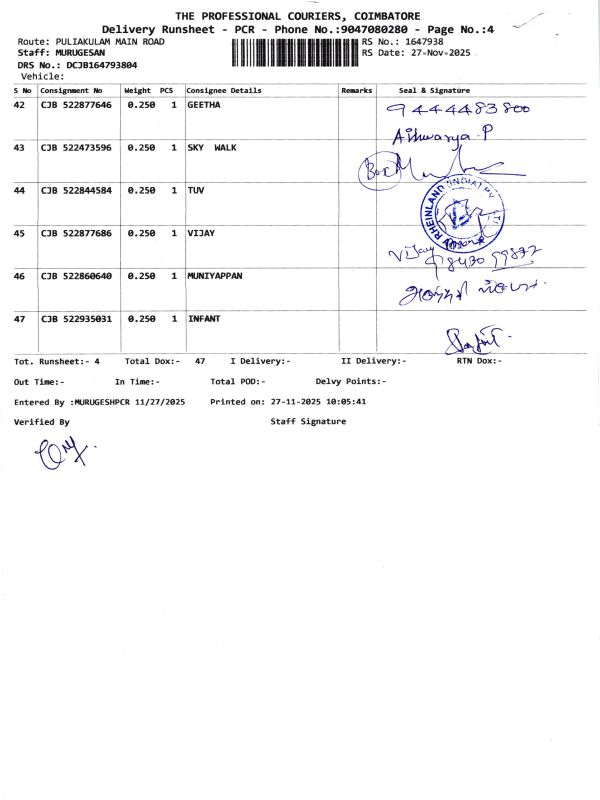 THE PROFESSIONAL COURIERS, COIMBATORE
Delivery Runsheet - PCR - Phone No.:9047080280 - Page No.:4
Route: PULIAKULAM MAIN ROAD RS No.: 1647938
Staff: MURUGESAN RS Date: 27-Nov-2025
DRS No.: DCJB164793804
Vehicle:
S No Consignment No Weight PCS Consignee Details Remarks Seal & Signature
42 CJB 522877646 0.250 1 GEETHA 9444483800
Aishwarya.P
43 CJB 522473596 0.250 1 SKY WALK
Box
44 CJB 522844584 0.250 1 TUV
RHEINLAND (INDIA) PV
45 CJB 522877686 0.250 1 VIJAY
Vijay
46 CJB 522860640 0.250 1 MUNIYAPPAN
47 CJB 522935031 0.250 1 INFANT
Tot. Runsheet:- 4 Total Dox:- 47 I Delivery:- II Delivery:- RTN Dox:-
Out Time:- In Time:- Total POD:- Delvy Points:-
Entered By :MURUGESHPCR 11/27/2025 Printed on: 27-11-2025 10:05:41
Verified By Staff Signature